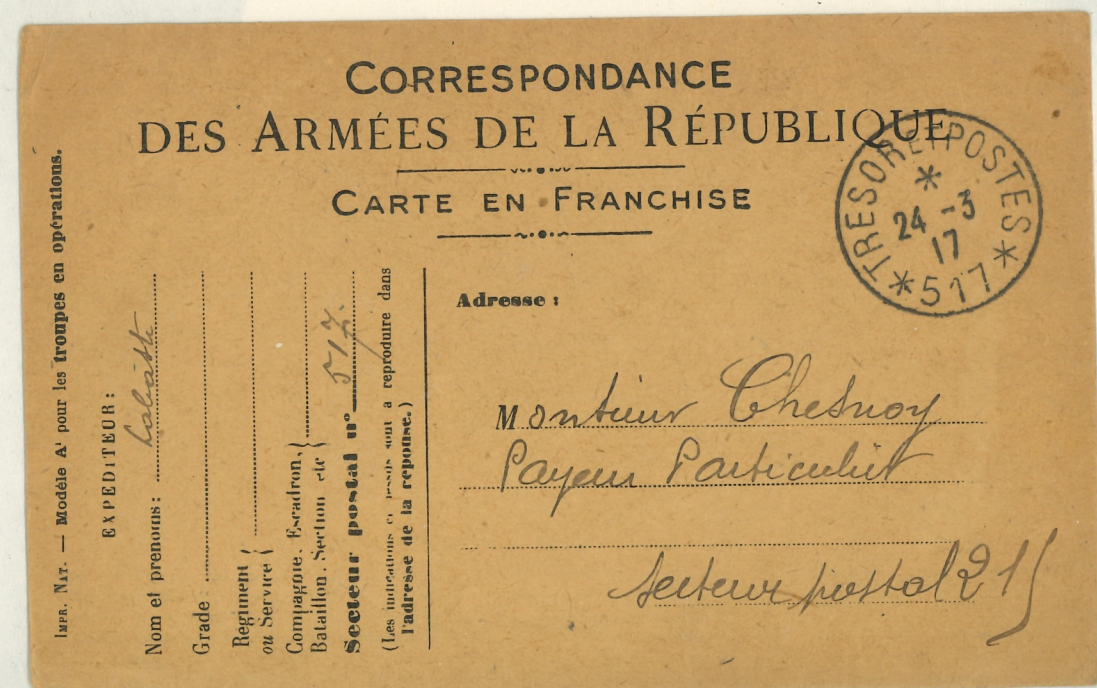 CORRESPONDANCE
DES ARMÉES DE LA RÉPUBLIQUE
CARTE EN FRANCHISE
TRESOR ET POSTES
*
24 -3
17
* 517 *
IMPR. NAT. — Modèle A¹ pour les troupes en opérations.
EXPEDITEUR:
Nom et prenoms:
Grade
Regiment
ou Service
Compagnie, Escadron,
Bataillon, Section etc
Secteur postal n° 517.
(Les indications ci dessus sont a reproduire dans
l'adresse de la reponse.)
Adresse :
Monsieur Chesnoy
Payeur Particulier
Secteur postal 215